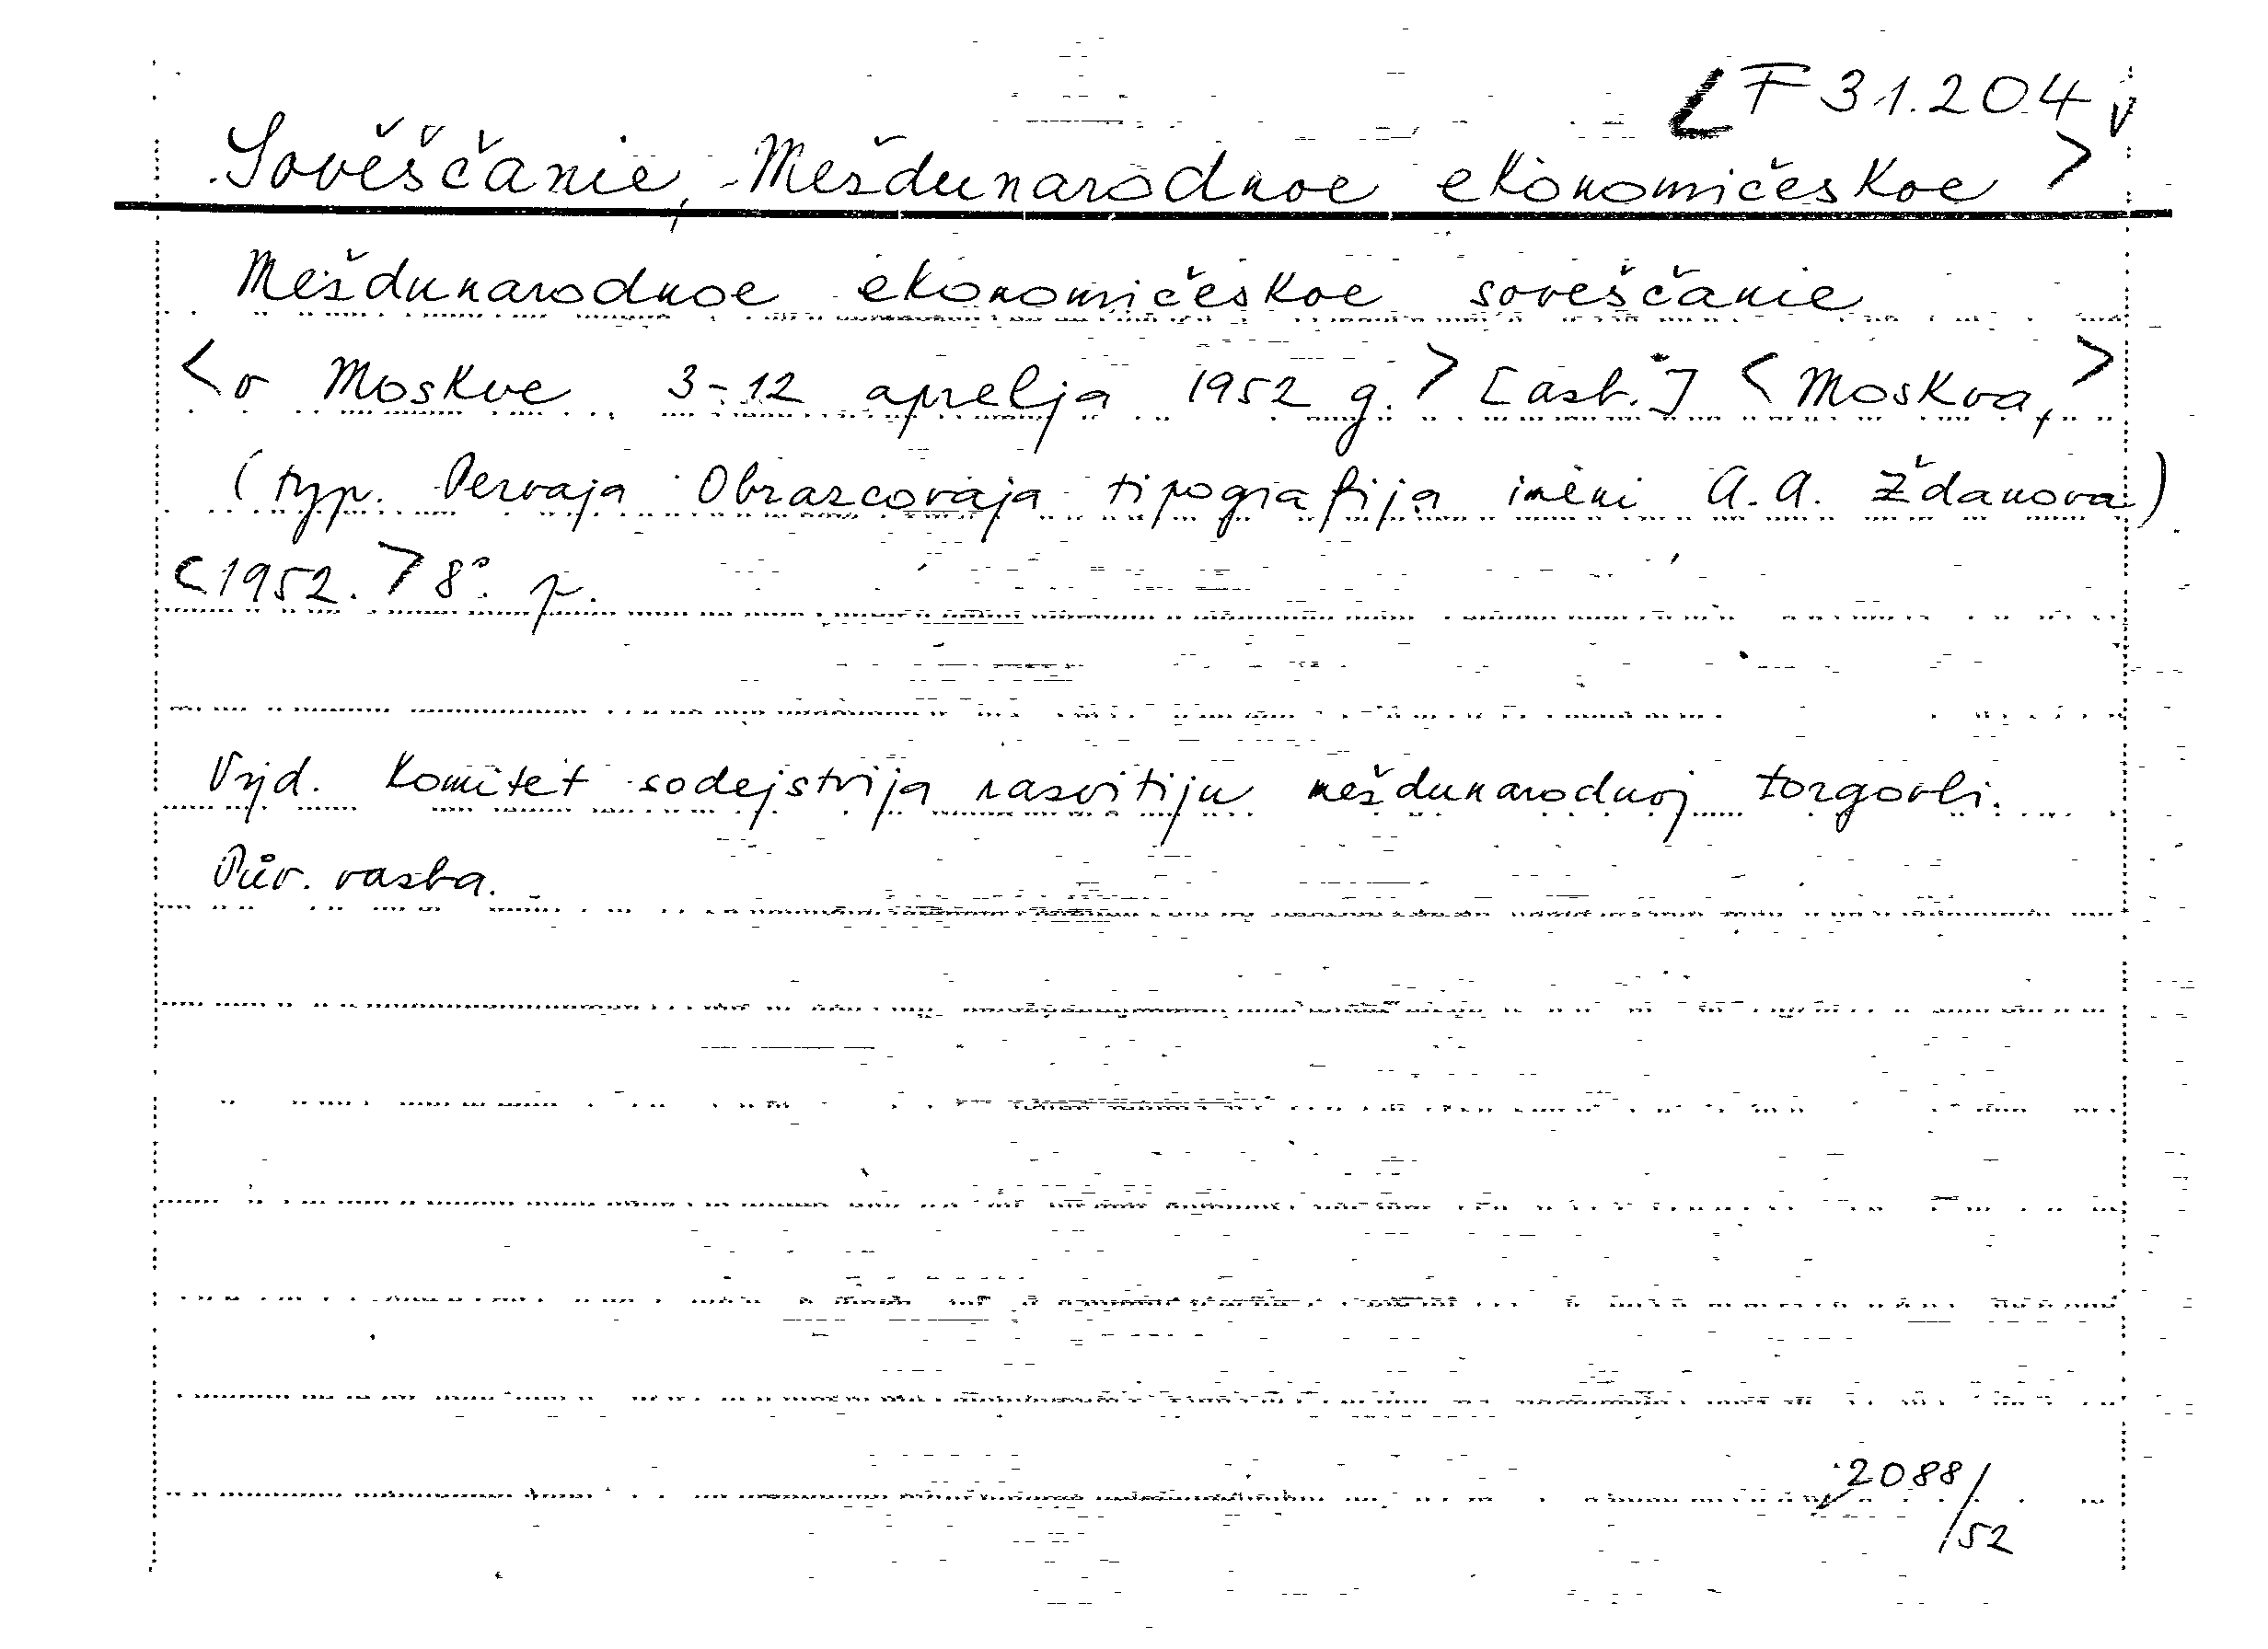 F 31.204
Sověščanie, Mešdunarodnoe ekonomičeskoe >
Meždunarodnoe ekonomičeskoe soveščanie
<v Moskve 3-12 aprelja 1952 g.> [ast.] <Moskva,>
(typ. Pervaja Obrazcovaja tipografija imeni A. A. Ždanova)
<1952.> 8°. p.
Vyd. Komitet sodejstvija razvitiju meždunarodnoj torgovli.
Pův. vazba.
2088/
/52